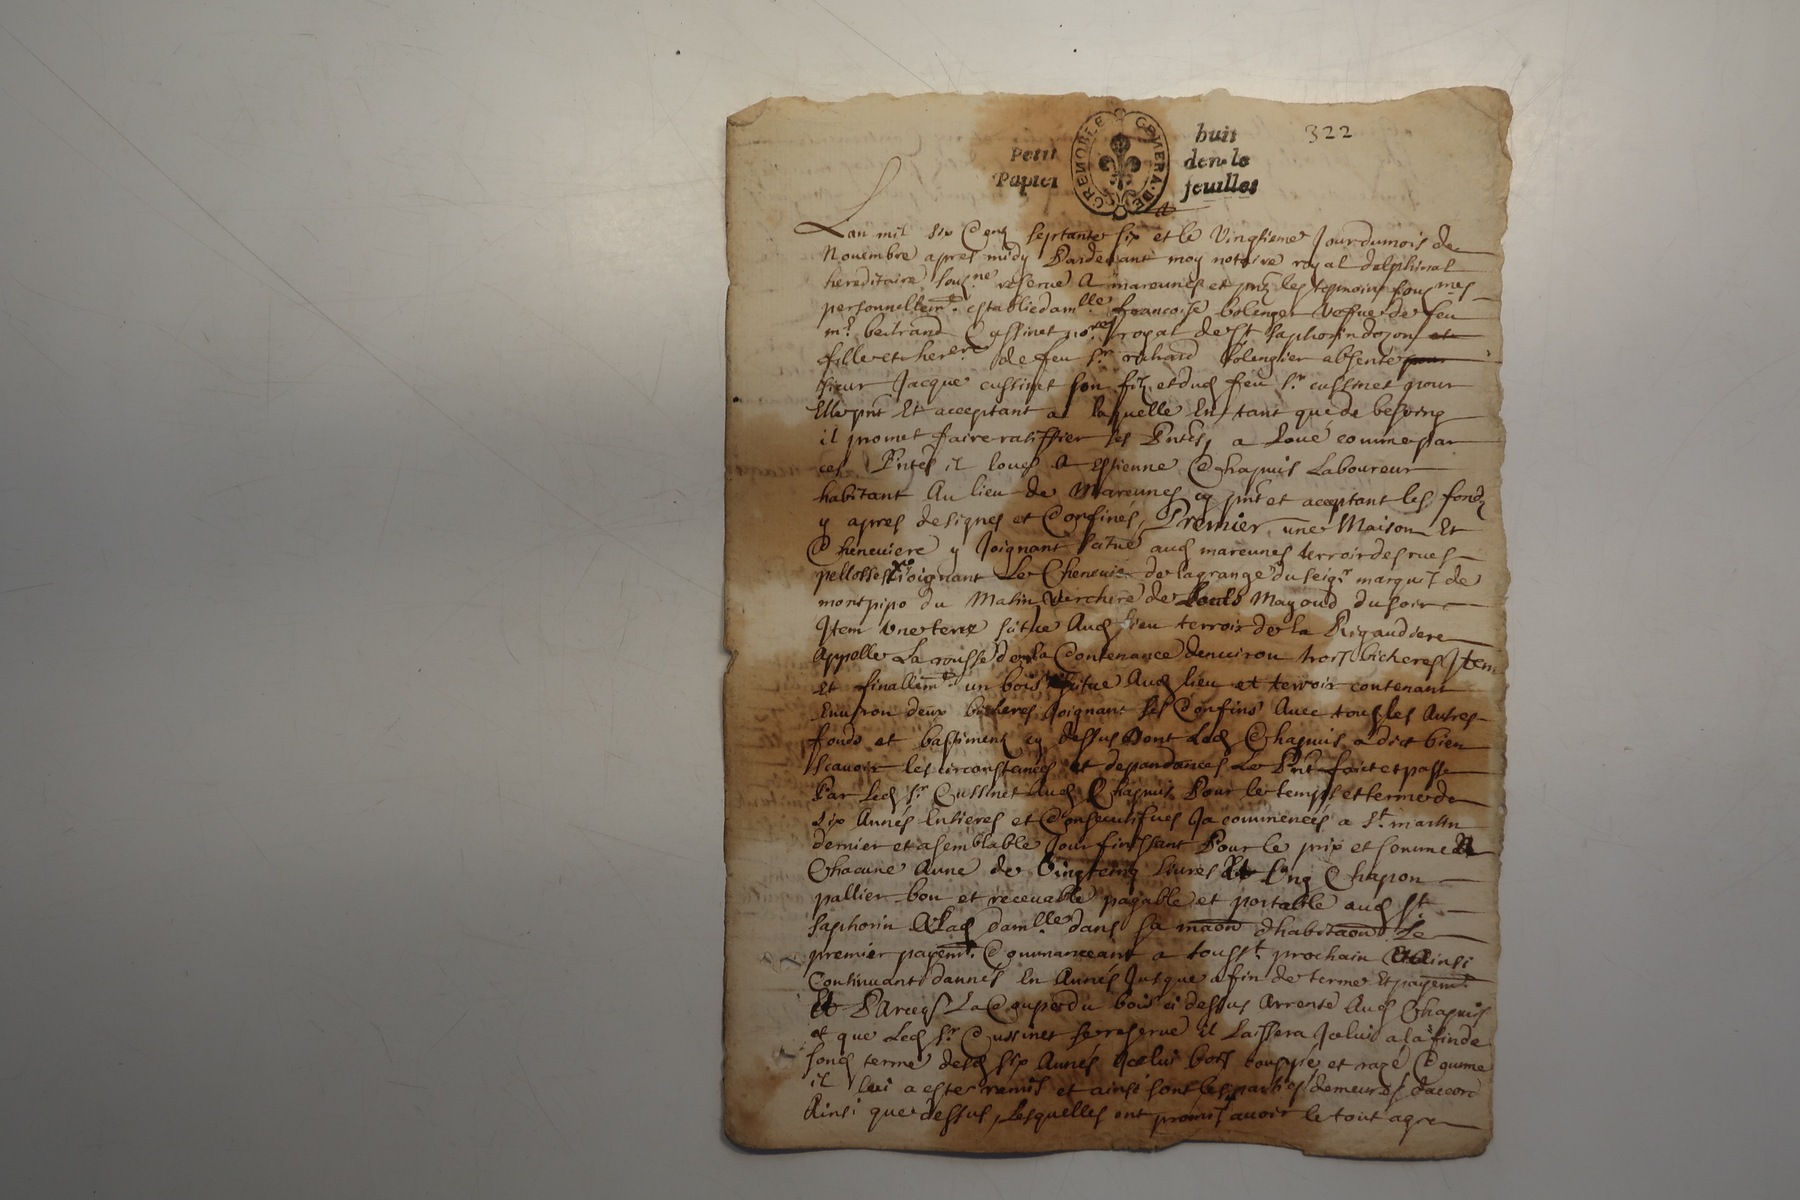 322
Petit Papier
GENERA·DE GRENOBLE
huit den. le feuilles
Lan mil six Cens septante six et le Vingtieme Jour du mois de
Novembre apres midy Pardevant moy notaire royal delphinal
hereditaire soubne reservé A mareunes et pnt les tesmoins soubnmes
personnellemt establie damlle francoise bolenger vesfue de feu
mr. bertrand Cussinet nore royal de St saphorin dozon et
fille et herere de feu sr. richard bolengier absente pour
sieur Jacque cussinet son filz et dud feu sr. cussinet pour
Elle pnt Et acceptant a laquelle En tant que de besoing
il promet faire ratiffier les Pntes, a Loué comme par
ces Pntes il loue A Estienne Chapuis Laboureur
habitant Au lieu de Mareunes cy pnt et acceptant les fondz
y apres designes et Confinés, Premier une Maison Et
Cheneuiere y Joignant scitué aud mareunes terroir des rues
pellosses Joignant Le Cheneuier de la grange du seigr marquis de
montpipo du Matin Verchere de Louis Mayoud du soir
Item Une terre scitue Aud lieu terroir de la Rigaudiere
Appelle La rousse de la Contenance denuiron trois bicherés Item
Et finallemt un bois scitue Aud lieu et terroir contenant
Enuiron deux bicherés Joignant ses Confins Avec tous les Autres
fonds et bastiment cy dessus Dont Led Chapuis a dict bien
scauoir les circonstances et dependances Le Pnt faict et passé
Par Led sr Cussinet Aud Chapuis Pour le temps et terme de
six Annés Entieres et Consecutifues Ja commencés a St. martin
dernier et a semblable Jour finissant Pour le prix et somme
Chacune Anné de Vingt cinq Liures Et Ung Chapon
pallier bon et receuable payable et portable aud St.
saphorin A lad damlle dans sa maon dhabitaon Le
premier payemt. Commanceant a tousst prochain Et Ainsi
Continuant dannés En Annés Jusque a fin de terme Et payemt
Et Parceq La Coupe du bois ci dessus Arrenté Aud Chapuis
et que Led sr. Cussinet se reserve il Laissera Jcelui a la fin de
sond terme desd six Annés Jcelui bois couppé et razé Comme
il lui a esté remis et ainsi sont les parties demeurés daccord
Ainsi que dessus, Lesquelles ont promis avoir le tout agre